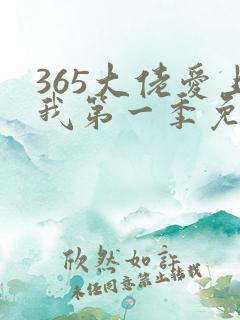 365大佬爱上
我第一季免
欣然如許
未经同意禁止转载